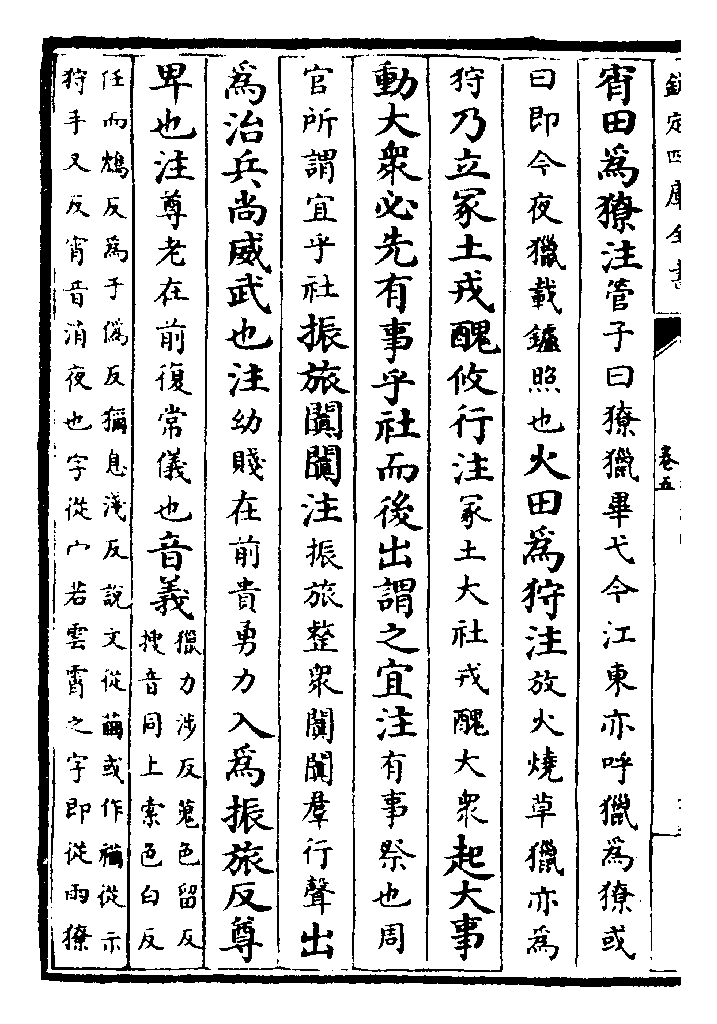 欽定四庫全書
卷五
宵田為獠注管子曰獠獵畢弋今江東亦呼獵為獠或
曰即今夜獵載鑪照也火田為狩注放火燒草獵亦為
狩乃立冡土戎醜攸行注冡土大社戎醜大衆起大事
動大衆必先有事乎社而後出謂之宜注有事祭也周
官所謂宜乎社振旅闐闐注振旅整衆闐闐羣行聲出
為治兵尚威武也注幼賤在前貴勇力入為振旅反尊
卑也注尊老在前復常儀也音義獵力涉反蒐色留反
搜音同上索色白反
任而鴆反為于偽反獮息淺反説文從繭或作禰從示
狩手又反宵音消夜也字從宀若雲霄之字即從雨獠